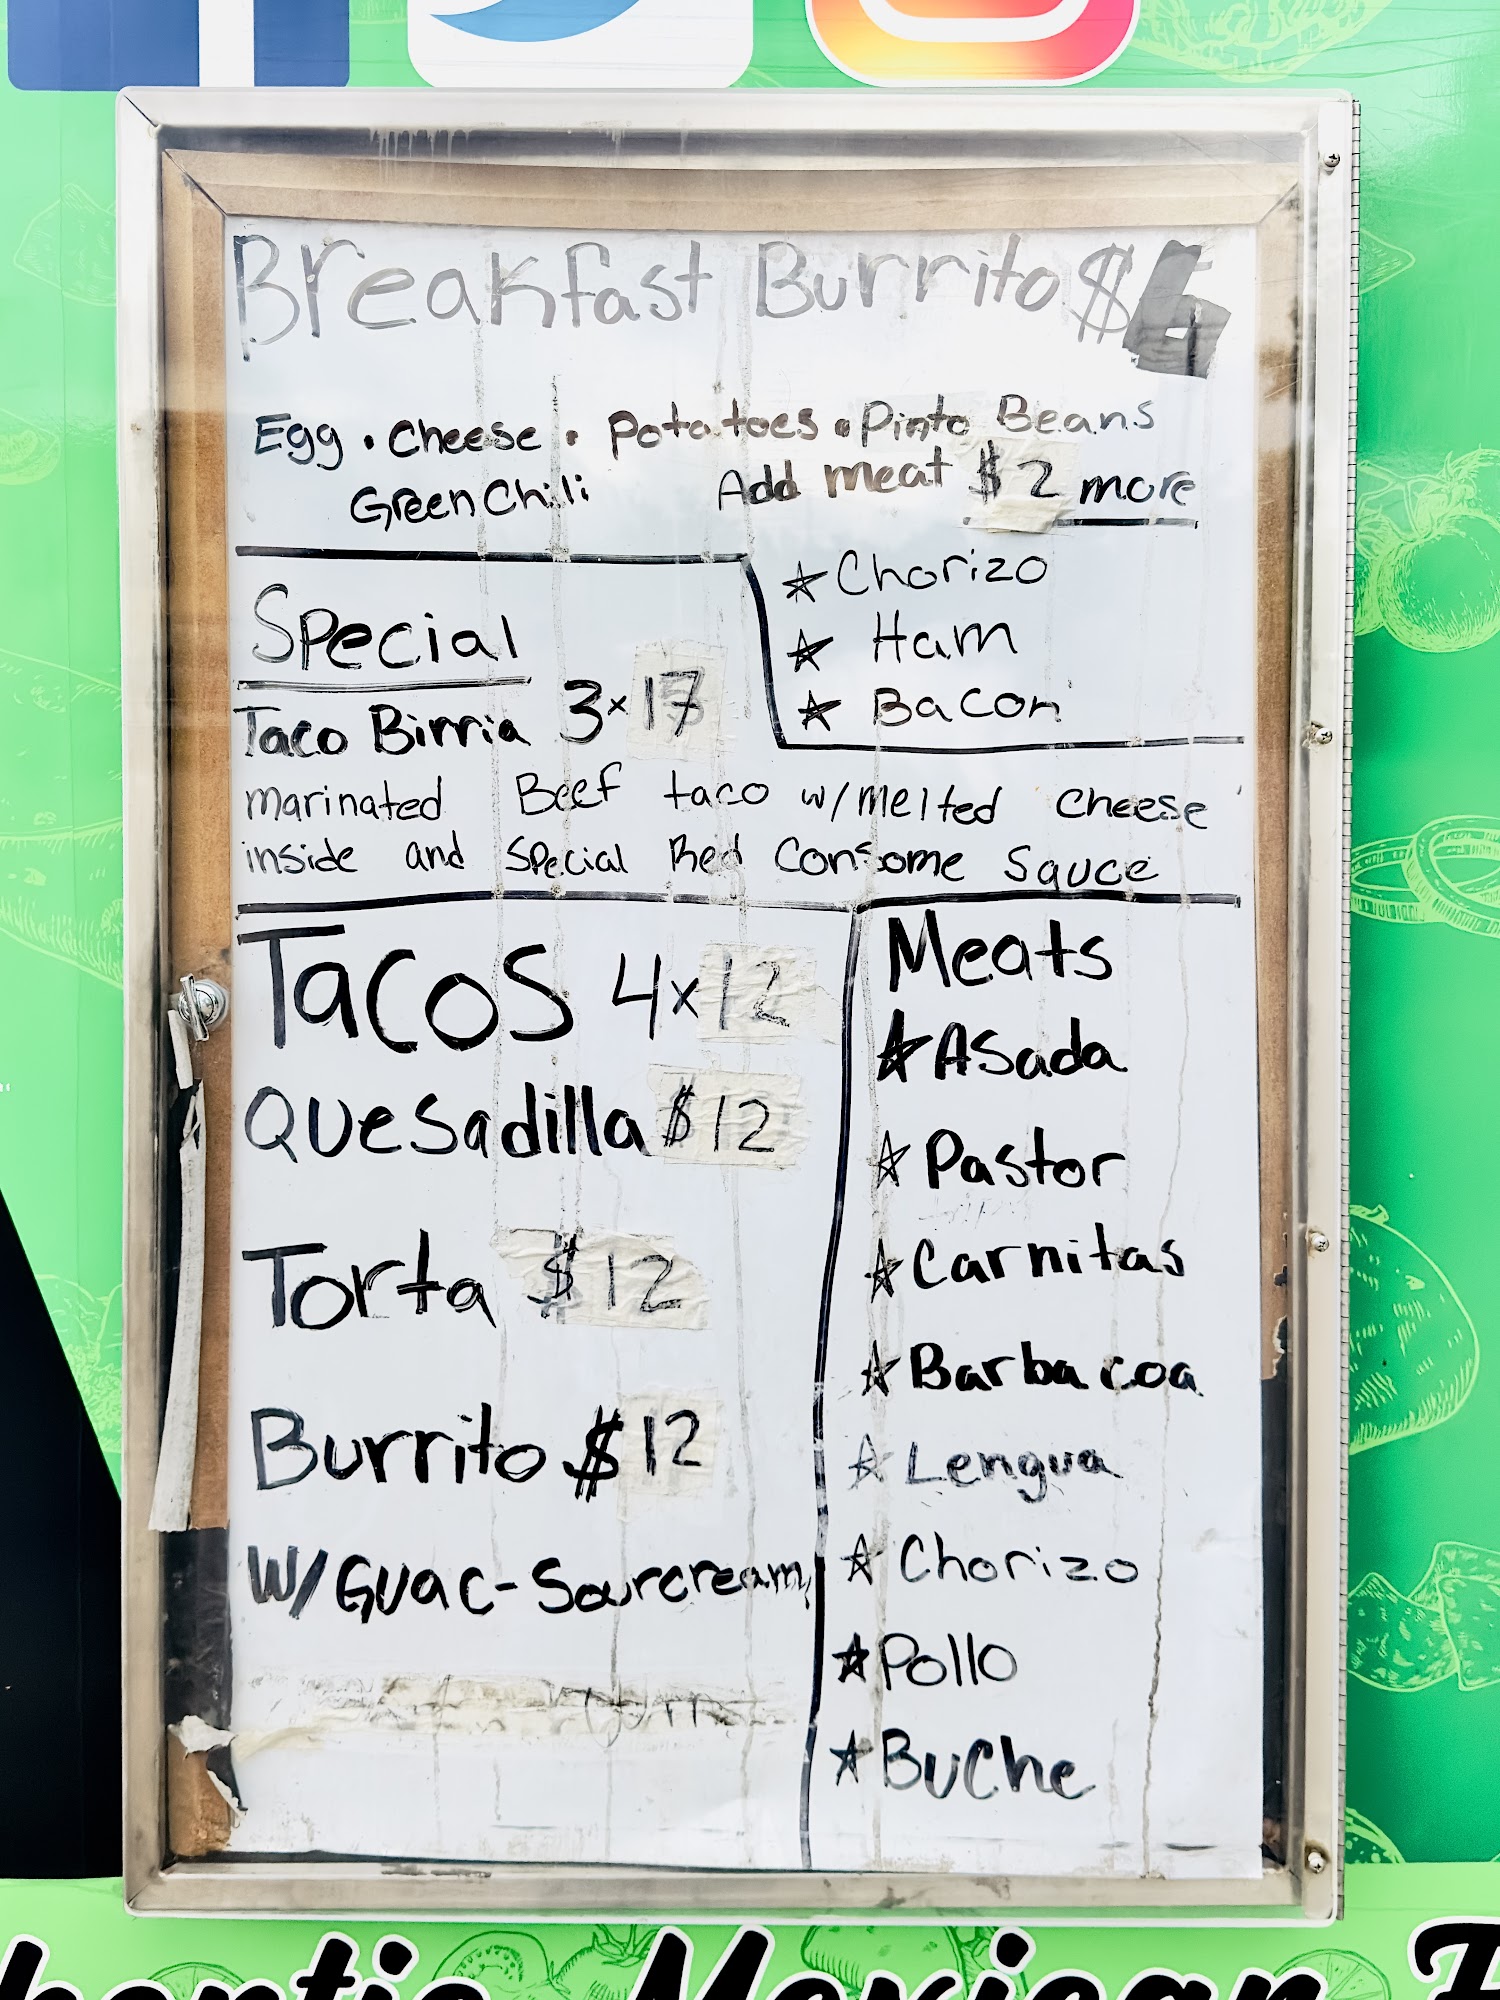 Breakfast Burrito $6
Egg • Cheese • Potatoes • Pinto Beans
Green Chili Add meat $2 more
☆ Chorizo
☆ Ham
☆ Bacon
Special
Taco Birria 3x17
marinated Beef taco w/melted cheese
inside and Special Red Consome Sauce
Tacos 4x12
Quesadilla $12
Torta $12
Burrito $12
W/Guac-Sourcream
Meats
☆ Asada
☆ Pastor
☆ Carnitas
☆ Barbacoa
☆ Lengua
☆ Chorizo
☆ Pollo
☆ Buche
Mexican